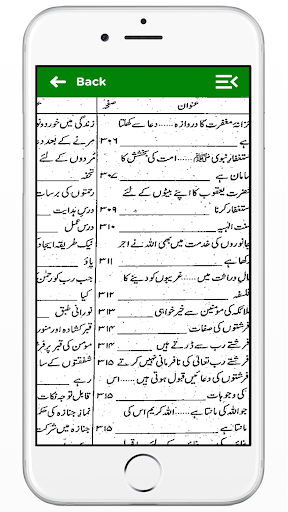 Back
عنوان صفحہ
خزانۂ مغفرت کا دروازہ ...... دعا سے کھلتا
ہے ۳۰۶
استغفار نبوی ﷺ ...... امت کی بخشش کا
سامان ہے ۳۰۷
حضرت یعقوب کا اپنے بیٹوں کے لئے
استغفار کرنا ۳۰۹
سنت الٰہیہ ۳۱۰
جانوروں کی خدمت میں بھی اللہ نے اجر
رکھا ہے ۳۱۱
مال وراثت میں ...... غریبوں کو دینے کا
فلسفہ ۳۱۲
ملائکہ کی مؤمنین سے خیر خواہی ۳۱۳
فرشتوں کی صفات ۳۱۴
فرشتے رب سے ڈرتے ہیں ۳۱۴
فرشتے رب تعالی کی نافرمانی نہیں کرتے ۳۱۵
فرشتوں کی دعائیں قبول ہوتی ہیں ...... اس
کی وجوہات ۳۱۵
جو اللہ کی مانتا ہے ...... اللہ کریم اس کی
مانتا ہے ۳۱۵
زندگی میں خورد و نو
مرنے کے بعد دع
مُردوں کے لئے
تحفہ
رحمتوں کی برسات
درس ہدایت
درس عمل
نیک طریقہ ایجاد
پاؤ
جب رب کو رحم آ
کیا
نورانی طبق
قبر کشادہ اور منور
مؤمن کی قبر پر فر
شفقتوں کے سا
رہے
قابل توجہ نکات
نماز جنازہ کی حک
جنازہ میں شرکت